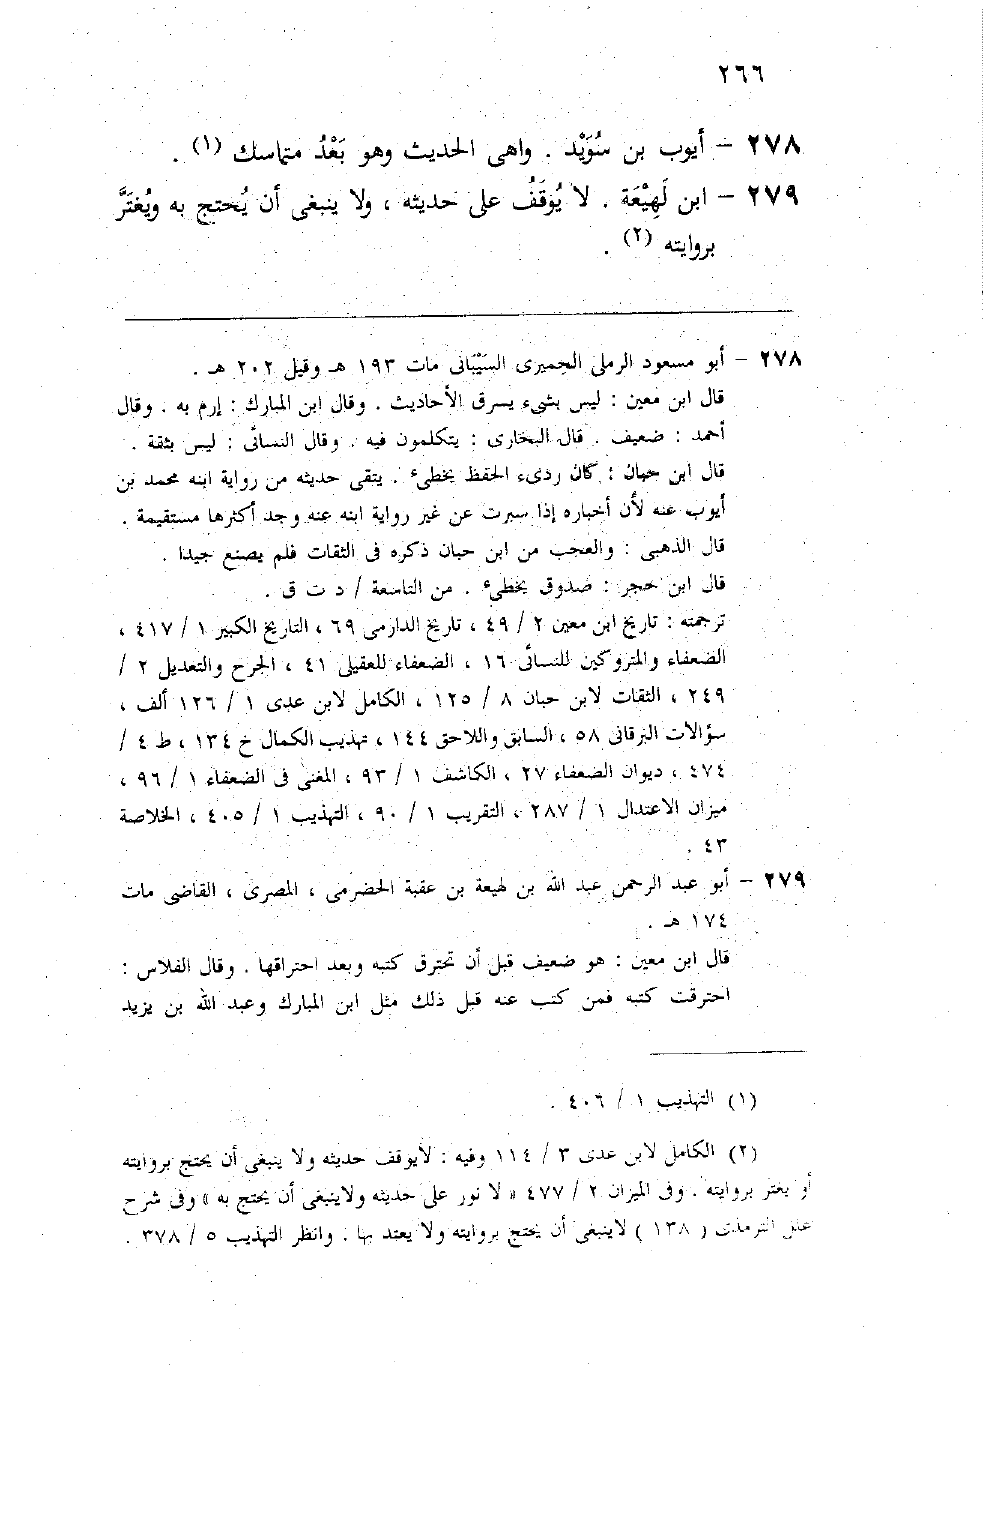 ٢٦٦
٢٧٨ – أيوب بن سُوَيْد . واهى الحديث وهو بَعْدُ متماسك (١) .
٢٧٩ – ابن لَهِيْعَة . لا يُوقَفُ على حديثه ، ولا ينبغى أن يُحتج به ويُغتَرَّ
بروايته (٢) .
٢٧٨ – أبو مسعود الرملى الحِميرى السَيْبَانى مات ١٩٣ هـ وقيل ٢٠٢ هـ .
قال ابن معين : ليس بشىء يسرق الأحاديث . وقال ابن المبارك : إرم به . وقال
أحمد : ضعيف . قال البخارى : يتكلمون فيه . وقال النسائى : ليس بثقة .
قال ابن حبان : كان ردىء الحفظ يخطىء . يتقى حديثه من رواية ابنه محمد بن
أيوب عنه لأن أخباره إذا سبرت عن غير رواية ابنه عنه وجد أكثرها مستقيمة .
قال الذهبى : والعجب من ابن حبان ذكره فى الثقات فلم يصنع جيدا .
قال ابن حجر : صدوق يخطىء . من التاسعة / د ت ق .
ترجمته : تاريخ ابن معين ٢ / ٤٩ ، تاريخ الدارمى ٦٩ ، التاريخ الكبير ١ / ٤١٧ ،
الضعفاء والمتروكين للنسائى ١٦ ، الضعفاء للعقيلى ٤١ ، الجرح والتعديل ٢ /
٢٤٩ ، الثقات لابن حبان ٨ / ١٢٥ ، الكامل لابن عدى ١ / ١٢٦ ألف ،
سؤالات البرقانى ٥٨ ، السابق واللاحق ١٤٤ ، تهذيب الكمال خ ١٣٤ ، ط ٤ /
٤٧٤ ، ديوان الضعفاء ٢٧ ، الكاشف ١ / ٩٣ ، المغنى فى الضعفاء ١ / ٩٦ ،
ميزان الاعتدال ١ / ٢٨٧ ، التقريب ١ / ٩٠ ، التهذيب ١ / ٤٠٥ ، الخلاصة
٤٣ .
٢٧٩ – أبو عبد الرحمن عبد الله بن لهيعة بن عقبة الحضرمى ، المصرى ، القاضى مات
١٧٤ هـ .
قال ابن معين : هو ضعيف قبل أن تحترق كتبه وبعد احتراقها . وقال الفلاس :
احترقت كتبه فمن كتب عنه قبل ذلك مثل ابن المبارك وعبد الله بن يزيد
(١) التهذيب ١ / ٤٠٦ .
(٢) الكامل لابن عدى ٣ / ١١٤ وفيه : لايوقف حديثه ولا ينبغى أن يحتج بروايته
أو يغتر بروايته . وفى الميزان ٢ / ٤٧٧ « لا نور على حديثه ولاينبغى أن يحتج به » وفى شرح
علل الترمذى ( ١٣٨ ) لاينبغى أن يحتج بروايته ولا يعتد بها . وانظر التهذيب ٥ / ٣٧٨ .